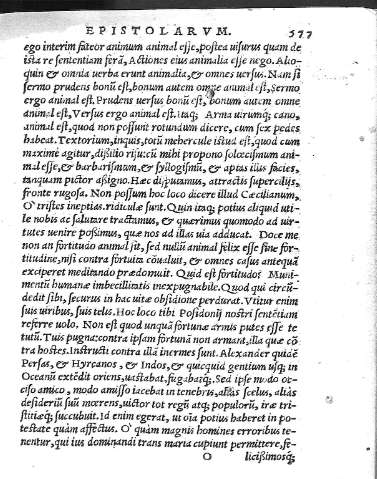 EPISTOLARVM. 577
ego interim fateor animum animal esse, postea uisurus quam de
ista re sententiam ferā, Actiones eius animalia esse nego. Alio-
quin & omnia uerba erunt animalia, & omnes uersus. Nam si
sermo prudens bonū est, bonum autem omne animal est, Sermo
ergo animal est. Prudens uersus bonū est, bonum autem omne
animal est, Versus ergo animal est. Itaq; Arma uirumq; cano,
animal est, quod non possunt rotundum dicere, cum sex pedes
habeat. Textorium, inquis, totū mehercule istud est, quod cum
maxime agitur, dissilio risu, cū mihi propono solœcismum ani-
mal esse, & barbarismum, & syllogismū, & aptas illis facies,
tanquam pictor assigno. Hæc disputamus, attractis supercilijs,
fronte rugosa. Non possum hoc loco dicere illud Cæcilianum,
O' tristes ineptias. ridiculæ sunt. Quin itaq; potius aliquid uti-
le nobis ac salutare tractamus, & quærimus quomodo ad uir-
tutes uenire possimus, quæ nos ad illas uia adducat. Doce me
non an fortitudo animal sit, sed nullū animal felix esse sine for-
titudine, nisi contra fortuita cōualuit, & omnes casus antequā
exciperet meditando prædomuit. Quid est fortitudo? Muni-
mentū humanæ imbecillitatis inexpugnabile. Quod qui circū-
dedit sibi, securus in hac uitæ obsidione perdurat. Vtitur enim
suis uiribus, suis telis. Hoc loco tibi Posidonij nostri sentētiam
referre uolo. Non est quod unquā fortunæ armis putes esse te
tutū. Tuis pugna: contra ipsam fortunā non armara, illa quæ cō
tra hostes. Instructi contra illā inermes sunt. Alexander quidē
Persas, & Hyrcanos, & Indos, & quicquid gentium usq; in
Oceanū extēdit oriens, uastabat, fugabatq;. Sed ipse modo oc-
ciso amico, modo amisso iacebat in tenebris, aliâs scelus, aliâs
desideriū suū mœrens, uictor tot regū atq; populorū, iræ tri-
stitiæq; succubuit. Id enim egerat, ut oīa potius haberet in po-
testate quàm affectus. O' quàm magnis homines erroribus te-
nentur, qui ius dominandi trans maria cupiunt permittere, fe-
O licissimosq;